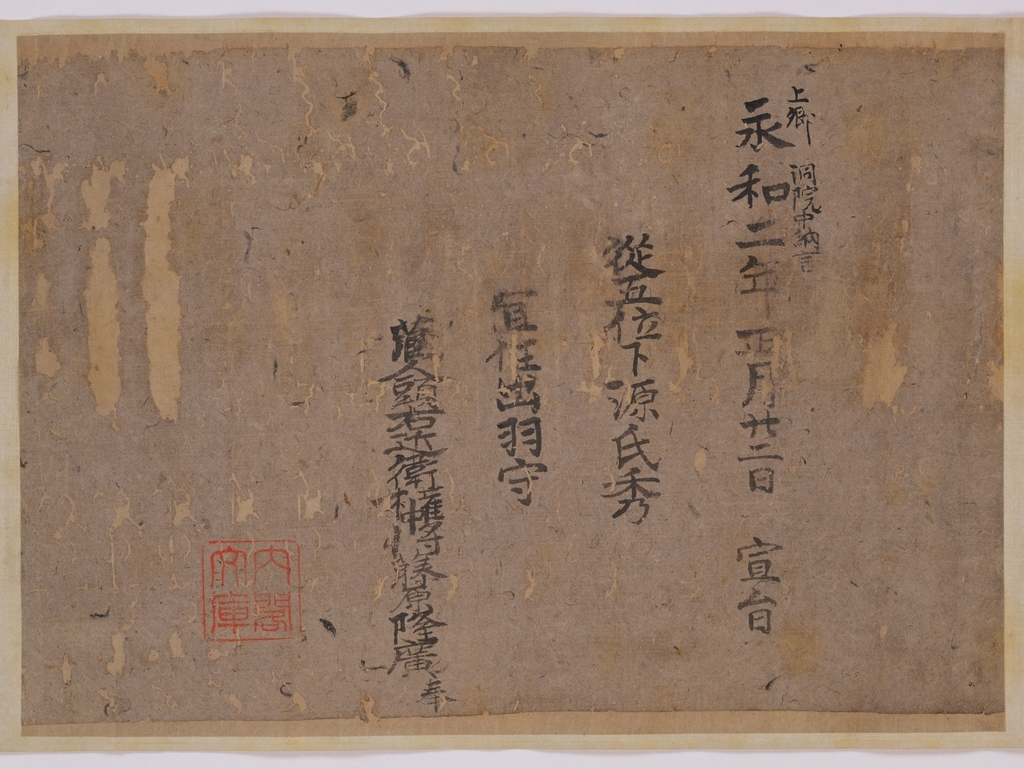 上卿 洞院中納言
永和二年正月廿二日 宣旨
從五位下源氏秀
宜任出羽守
藏人頭右近衛權中將藤原隆廣奉
内閣文庫